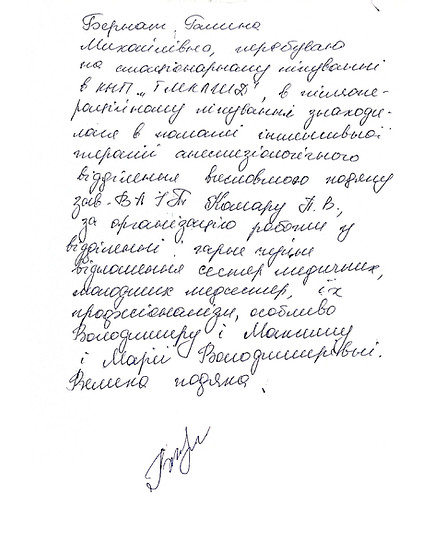 Бернат Галина
Михайлівна, перебуваю
на стаціонарному лікуванні
в КНП „ТМКЛШД", в післяопе-
раційному лікуванні знаходи-
лася в палаті інтенсивної
терапії анестезіологічного
відділення висловлюю подяку
зав. ВАІТ Комару П.В.,
за організацію роботи у
відділенні і гарне чуйне
відношення сестер медичних,
молодших медсестер, їх
професіоналізм, особливо
Володимиру і Максиму
і Марії Володимирівні.
Велика подяка.